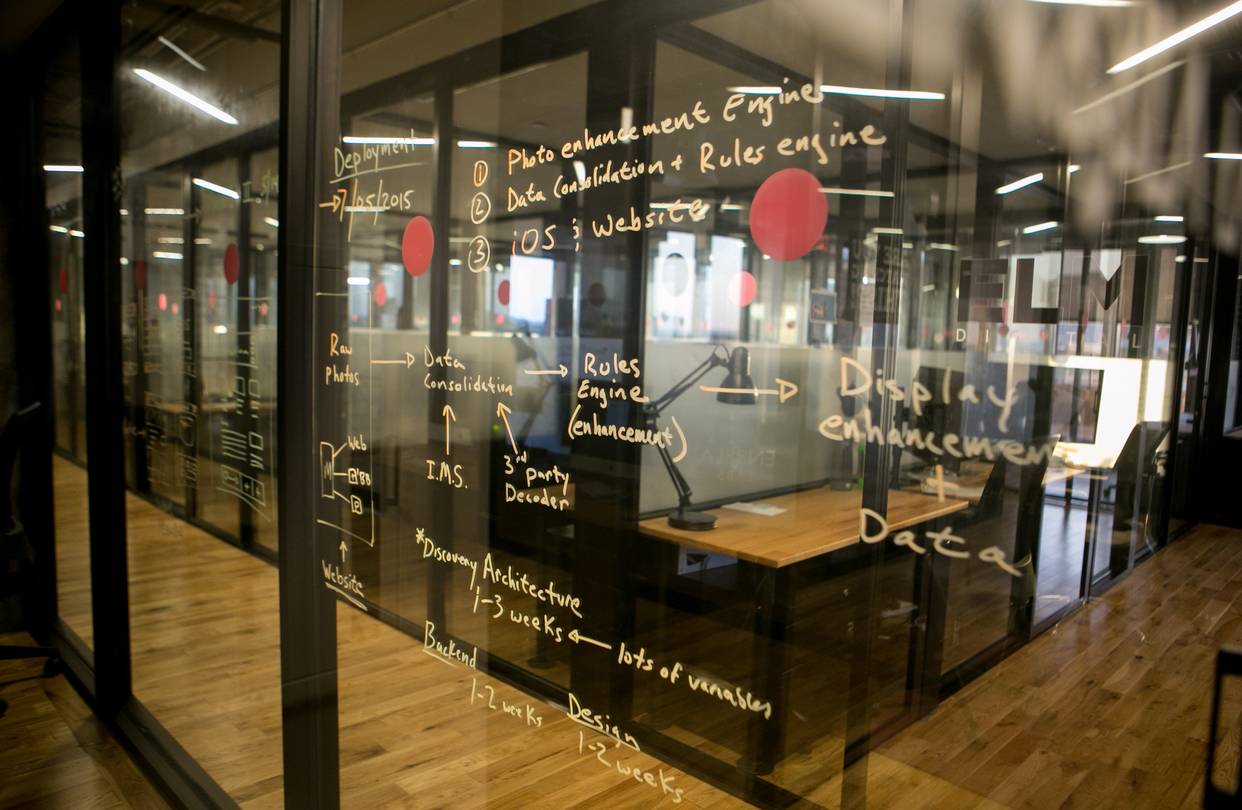 Deployment
→7/05/2015
① Photo enhancement Engine
② Data Consolidation + Rules engine
③ iOS & Website
Raw
Photos
→ Data
Consolidation
→ Rules
Engine
(enhancement)
→ Display
enhancement
+
Data
I.M.S.
3rd party
Decoder
Web
M
Website
*Discovery Architecture
1-3 weeks ← lots of variables
Backend
1-2 weeks
Design
1-2 weeks
ELM
DIGITAL